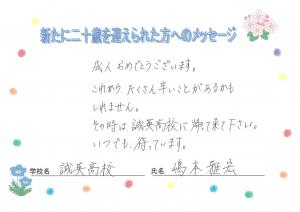 新たに二十歳を迎えられた方へのメッセージ
成人おめでとうございます。
これから、たくさん辛いことがあるかも
しれません。
その時は誠英高校に帰って来て下さい。
いつでも、待っています。
学校名 誠英高校 氏名 嶋本 雅宏